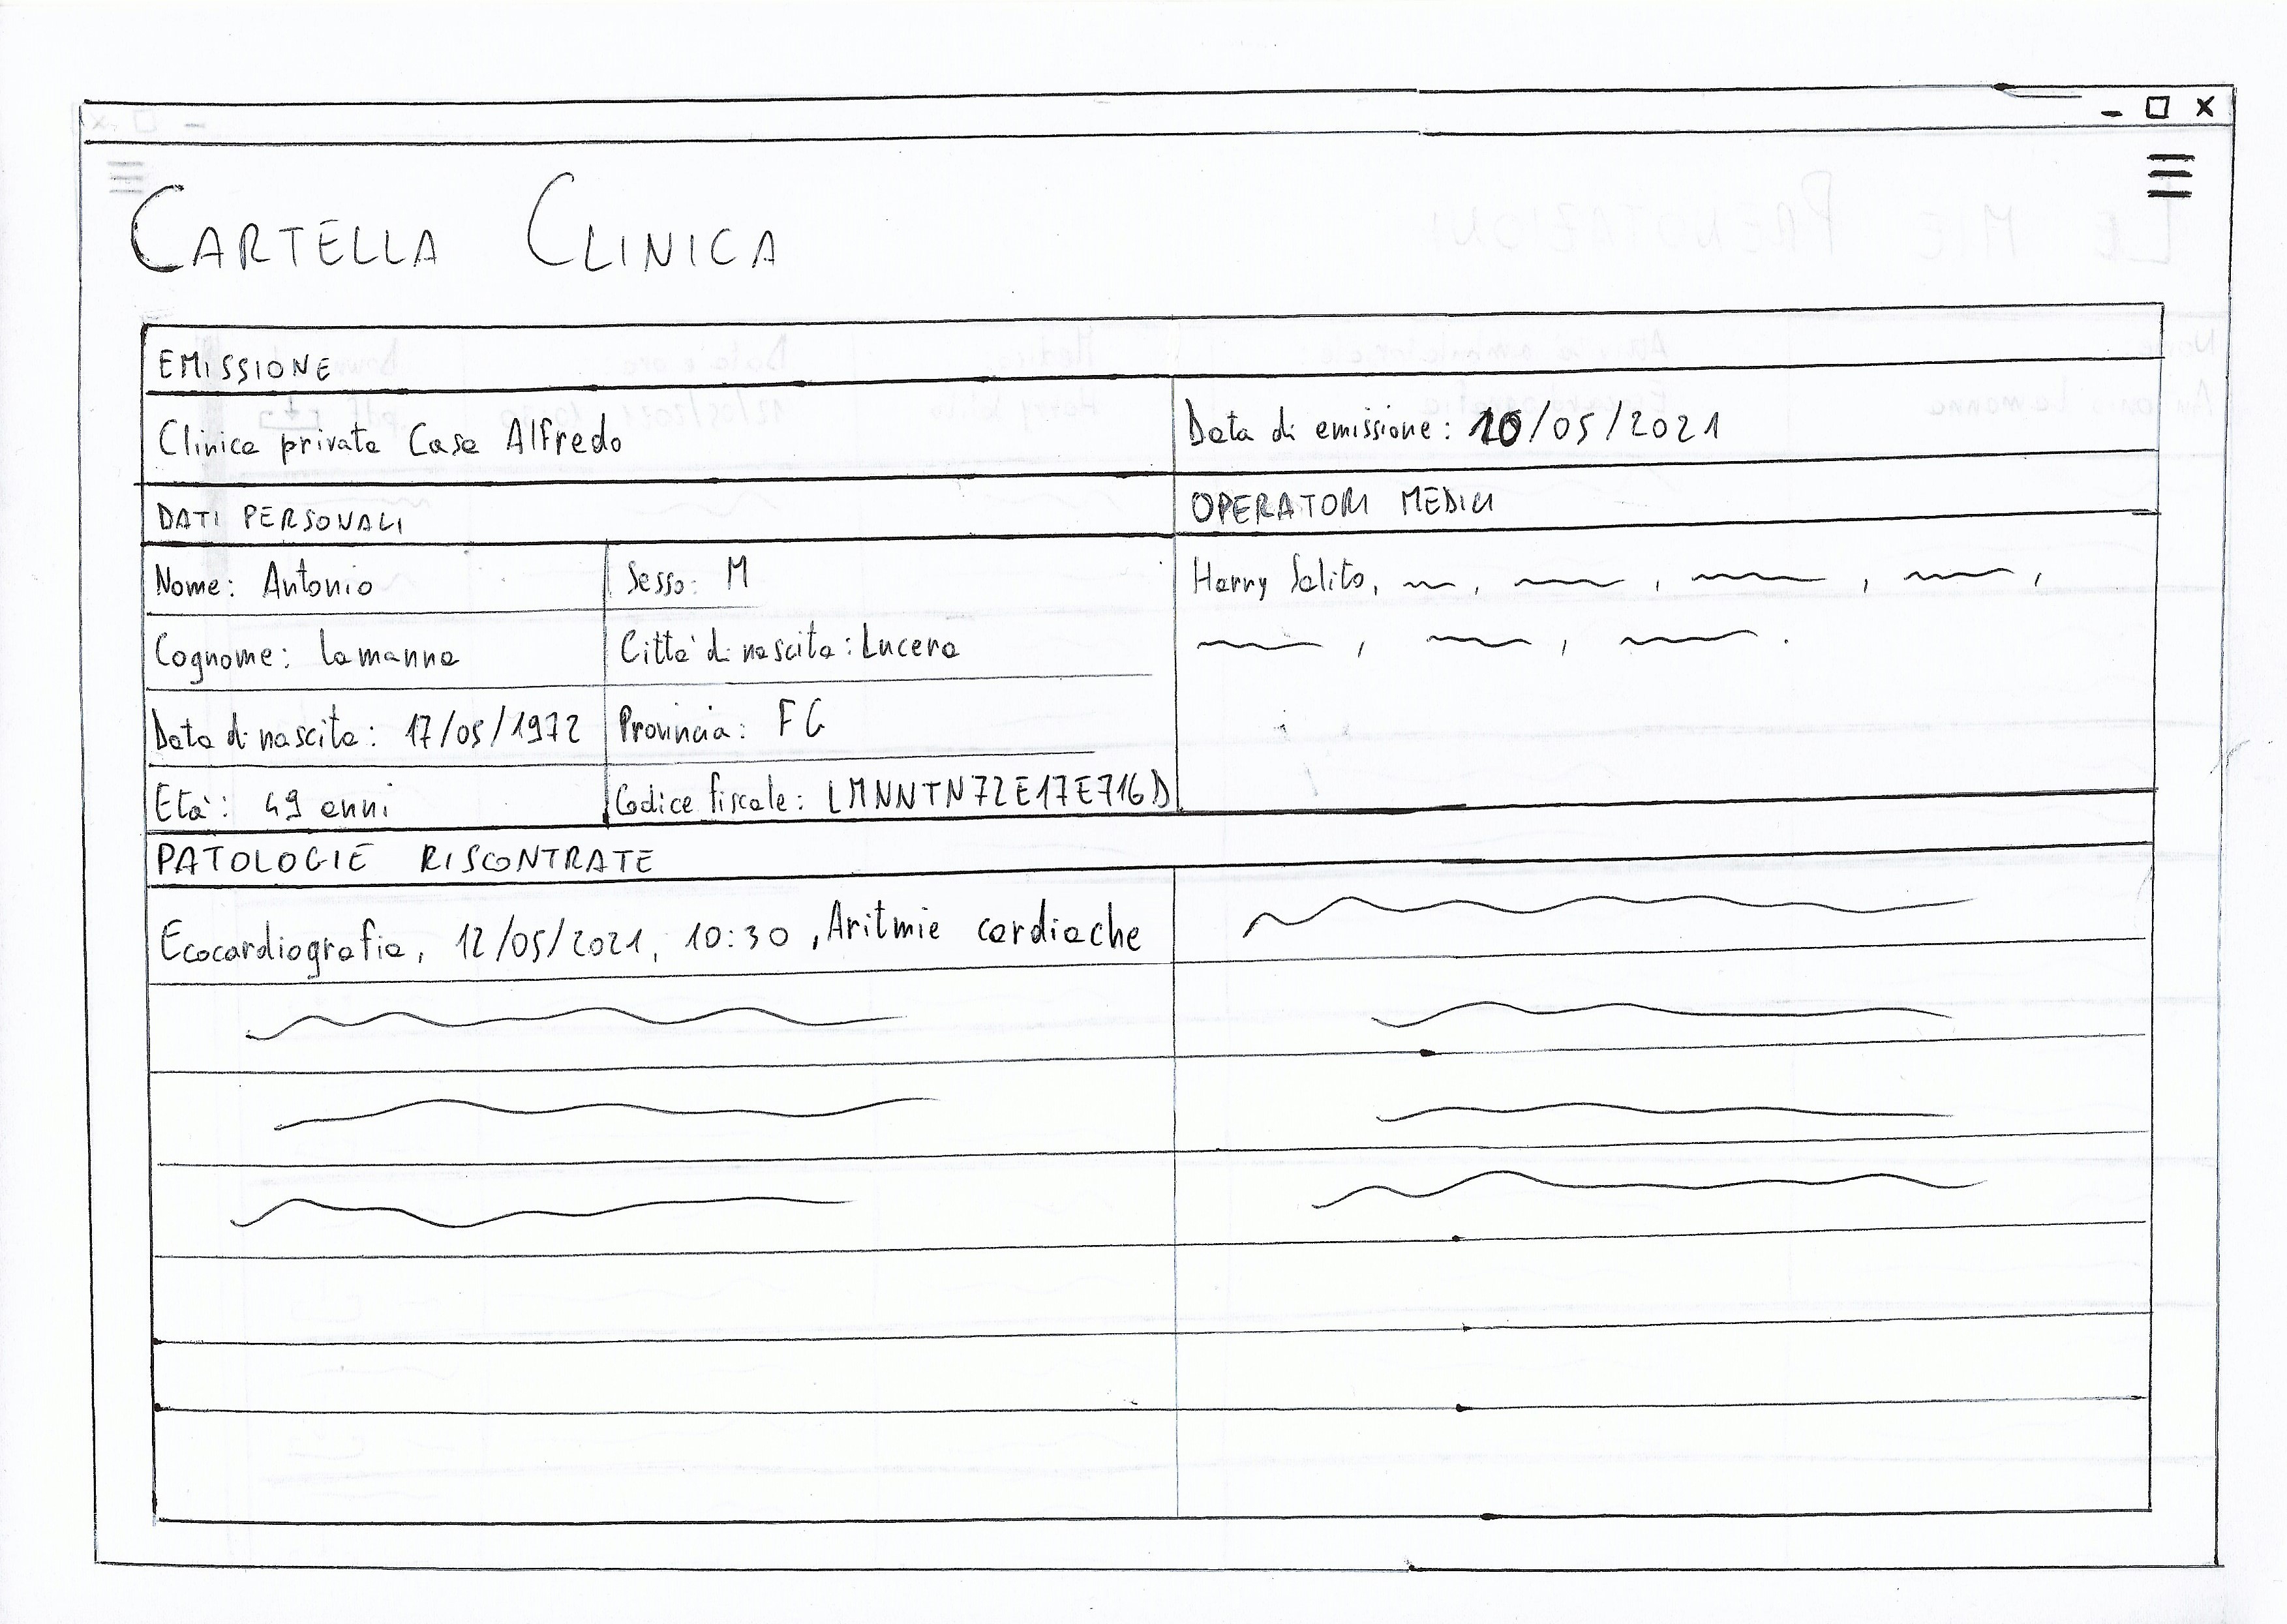 CARTELLA CLINICA
EMISSIONE
Clinica privata Casa Alfredo
Data di emissione: 10/05/2021
DATI PERSONALI
OPERATORI MEDICI
Nome: Antonio
Sesso: M
Harry Salito,
Cognome: Lamanna
Città di nascita: Lucera
Data di nascita: 17/05/1972
Provincia: FG
Età: 49 anni
Codice fiscale: LMNNTN72E17E716D
PATOLOGIE RISCONTRATE
Ecocardiografia, 12/05/2021, 10:30, Aritmie cardiache